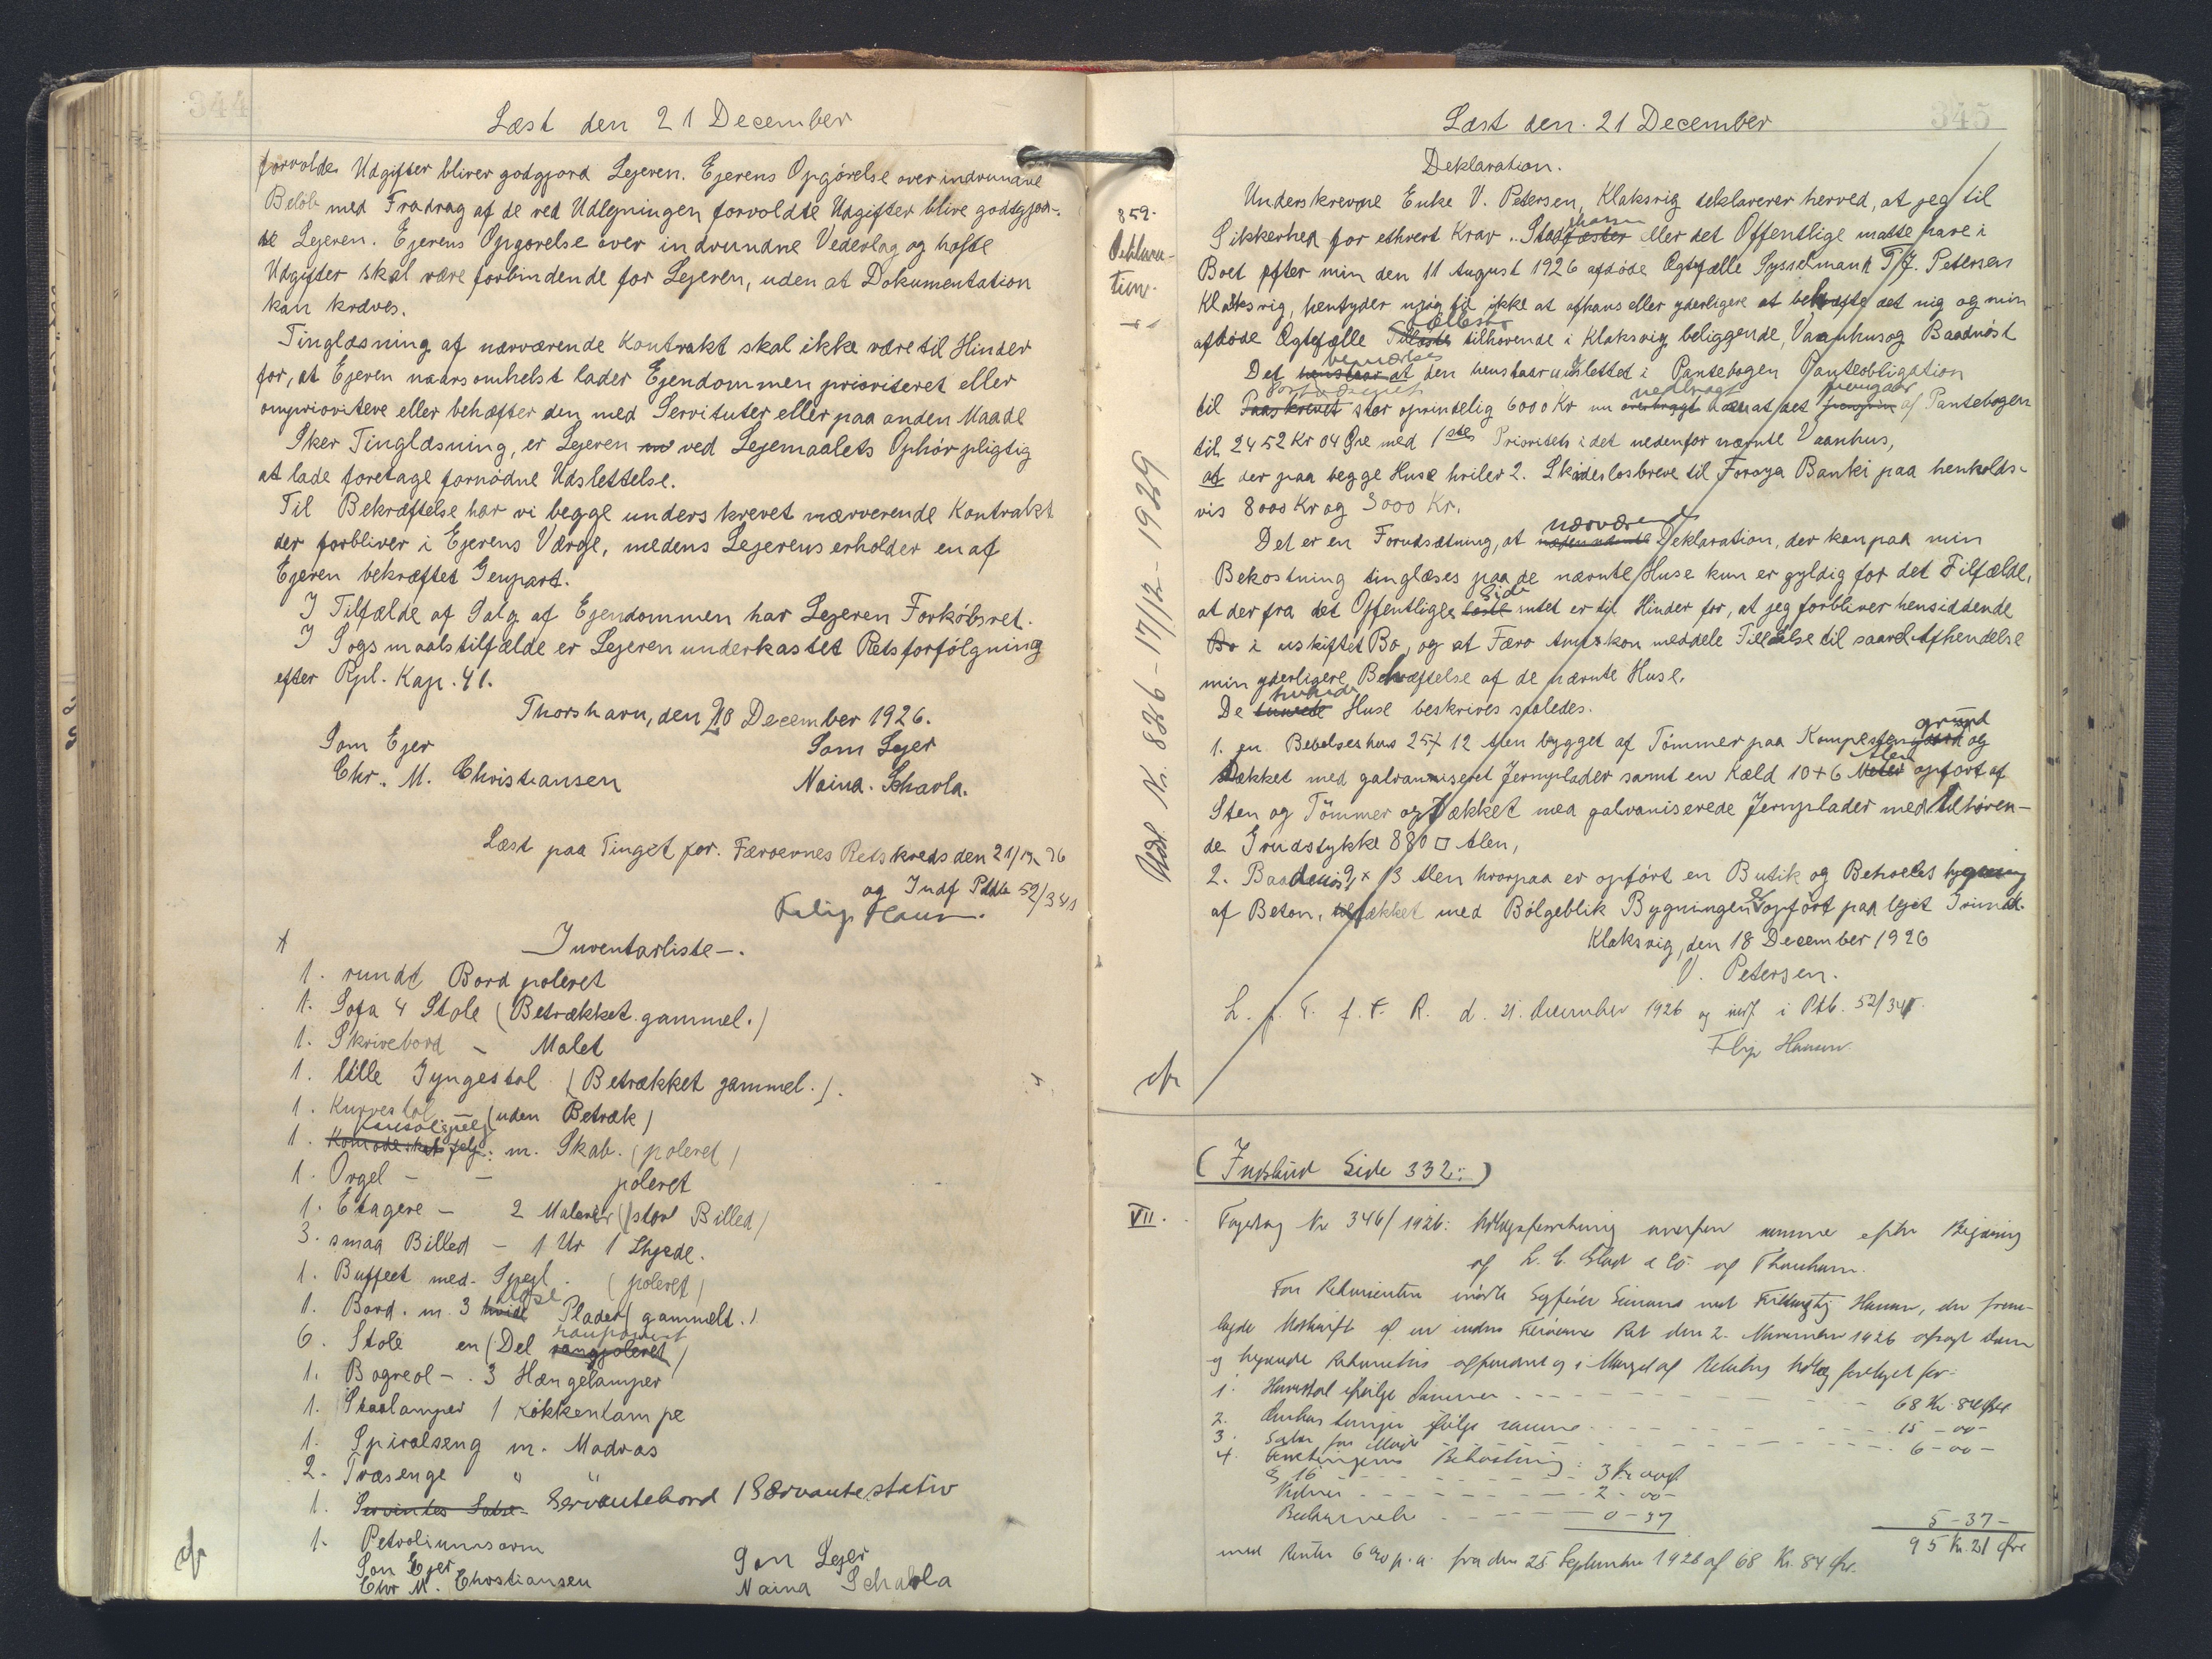 344
Læst den 21 December
forvoldte Udgifter bliver godtgjord Lejeren. Ejerens Opgörelse over indvundne
Belöb med Fradrag af de ved Udlejningen forvoldte Udgifter blive godtgjor-
de Lejeren. Ejerens Opgörelse over indvundne Vederlag og hafte
Udgifter skal være forbindende for Lejeren, uden at Dokumentation
kan kræves.
Tinglæsning af nærværende Kontrakt skal ikke være til Hinder
for, at Ejeren naarsomhelst lader Ejendommen prioriteret eller
omprioritere eller behæfter den med Servituter eller paa anden Maade
Sker Tinglæsning, er Lejeren ved Lejemaalets Ophör pligtig
at lade foretage fornödne Udslettelse.
Til Bekræftelse har vi begge underskrevet nærverende Kontrakt
der forbliver i Ejerens Værge, medens Lejerens erholder en af
Ejeren bekræftet Genpart.
I Tilfælde af Salg af Ejendommen har Lejeren Forköbsret.
I Sogsmaalstilfælde er Lejeren underkastet Retsforfölgning
efter Rpl. Kap. 41.
Thorshavn, den 20 December 1926.
Som Ejer Som Lejer
Chr. M. Christiansen Naina. Scharla.
Læst paa Tinget for. Færøernes Retskreds den 21/12 26
og Indf Ptb 52/341
Inventarliste-.
1. rundt Bord poleret
1. Sofa 4 Stole (Betrækket gammel.)
1. Skrivebord - Malet
1. lille Gyngestol (Betrækket gammel.).
1. Kurvestol - (uden Betræk)
1. Konsolspejl m. Skab. (poleret)
1. Orgel - - poleret
1. Etagere - 2 Malerier (store Billed)
3. smaa Billed - 1 Ur 1 Hyede.
1. Buffeet med Spejl. (poleret)
1. Bord. m. 3 löse Plader (gammelt.)
6. Stole en (Del
1. Bogreol - . 3 Hængelamper
1. Staalamper 1 Kökkenlampe
1. Spiralseng m. Madras
2. Træsenge " "
1. Servantebord 1 Servantestativ
1. Petroliumsovn
Som Ejer Som Lejer
Chr M. Christiansen Naina Scharla
345
Læst den. 21 December
859.
Deklara-
tion.
Udl. Nr. 826 - 17/12 - 1929
Deklaration.
Underskrevne Enke V. Petersen, Klaksvig deklarerer herved, at jeg til
Sikkerhed for ethvert Krav eller det Offentlige maatte have i
Boet efter min den 11 August 1926 afdöde Ægtefælle Sysselmand T/J. Petersen
Klaksvig, ikke at afhans eller yderligere at behæfte det mig og min
afdöde Ægtefælle Fællesbo tilhörende i Klaksvig beliggende, Vaanhus og Baadnöst
Det bemærkes at den henstaar uudslettet i Pantebogen Panteobligation
til stor oprindelig 6000 Kr nu nedbragt af Pantebogen
til 2452 Kr 04 Øre med 1stes Prioritets i det nedenfor nævnte Vaanhus,
at der paa begge Huse hviler 2. Skadeslosbreve til Föroya Banki paa henholds-
vis 8000 Kr og 3000 Kr.
Det er en Forudsætning, at nærværende Deklaration, der kan paa min
Bekostning tinglæses paa de nævnte Huse kun er gyldig for det Tilfælde,
at der fra det Offentliges Side intet er til Hinder for, at jeg forbliver hensiddende
i uskiftet Bo, og at Færo Amt kan meddele Tilladelse til saavel Afhendelse
min yderligere Behæftelse af de nævnte Huse.
De Huse beskrives saaledes.
1. en Beboelseshus 25 x 12 Alen bygget af Tömmer paa Kampestengrund og
Dækket med galvaniseret Jernplader samt en Kæld 10 + 6 Alen opfört af
Sten og Tömmer og Dækket med galvaniserede Jernplader med tilhören-
de Grudstykke 880 □ Alen,
2. Baadenös 9 x 13 Alen hvorpaa er opfört en Butik og Beboelses bygning
af Beton, tækket med Bölgeblik Bygningen er opfört paa lejet Grund.
Klaksvig, den 18 December 1926
V. Petersen.
L. p. T. f. F. R. d. 21. december 1926 og indf i Ptb. 52/345.
(Indskud Side 332:)
VII. Fogedsag Nr 346/1926: Udlægsforretning efter Begæring
af og Thorshavn.
For Rekvirenten mödte Hansen, der frem-
lagde Udskrift af en inden Færöernes Ret den 2. November 1926 afsagt Dom
og begærede Udlæg foretaget for:
1. Hovedstol ifölge Dommen - - - 68 Kr. 84 Øre
2. Omkostninger ifölge samme - - - 15 - 00 -
3. - - - 6 - 00 -
4. Forretningens Bekostning:
§ 16 - - - 3 Kr 00 Ø
Vidner - - - 2 - 00 -
- - - 0 - 37 5 - 37 -
95 Kr. 21 Øre
med Renter 6 % p. a. fra den 25 September 1926 af 68 Kr. 84 Øre.